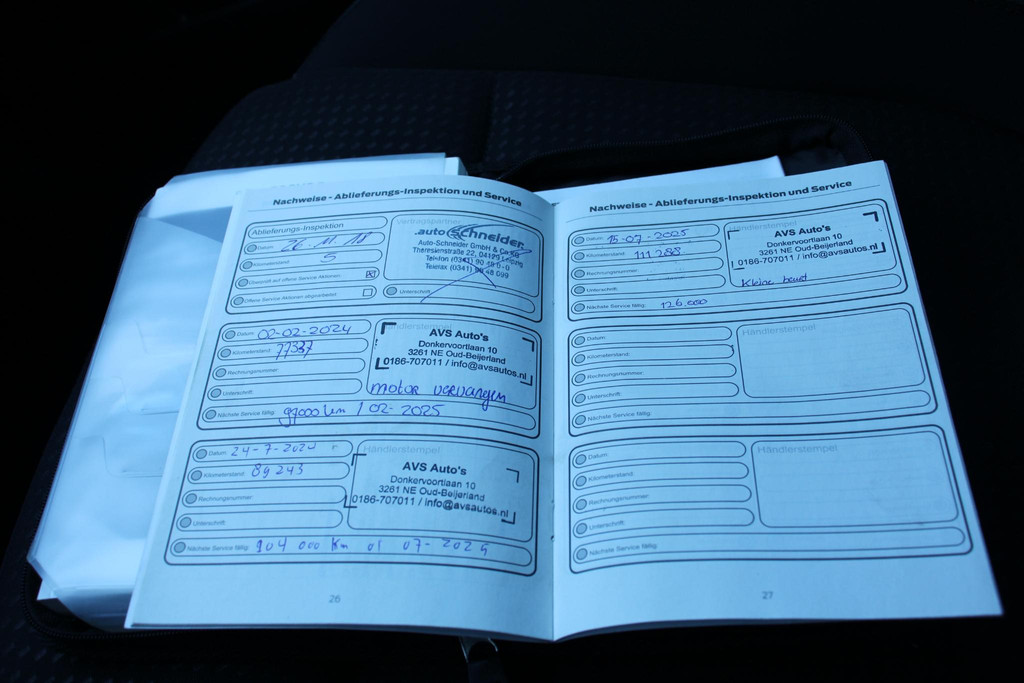 Nachweise - Ablieferungs-Inspektion und Service
Ablieferungs-Inspektion
Datum: 26.11.18
Kilometerstand: 5
Überprüft auf offene Service-Aktionen:
Offene Service-Aktionen abgearbeitet:
Vertragspartner
auto schneider
Auto-Schneider GmbH & Co. KG
Theresienstraße 22, 04129 Leipzig
Telefon (0341) 90 49 0-0
Telefax (0341) 90 48 099
Unterschrift:
Datum: 02-02-2024
Kilometerstand: 77337
Rechnungsnummer:
Unterschrift:
Nächste Service fällig: 97000 km / 02-2025
Händlerstempel
AVS Auto's
Donkervoortlaan 10
3261 NE Oud-Beijerland
0186-707011 / info@avsautos.nl
motor vervangen
Datum: 24-7-2024
Kilometerstand: 89243
Rechnungsnummer:
Unterschrift:
Nächste Service fällig: 104 000 Km of 07-2025
Händlerstempel
AVS Auto's
Donkervoortlaan 10
3261 NE Oud-Beijerland
0186-707011 / info@avsautos.nl
26
Nachweise - Ablieferungs-Inspektion und Service
Datum: 15-07-2025
Kilometerstand: 111 288
Rechnungsnummer:
Unterschrift:
Nächste Service fällig: 126.000
Händlerstempel
AVS Auto's
Donkervoortlaan 10
3261 NE Oud-Beijerland
0186-707011 / info@avsautos.nl
Kleine beurt
Datum:
Kilometerstand:
Rechnungsnummer:
Unterschrift:
Nächste Service fällig:
Händlerstempel
Datum:
Kilometerstand:
Rechnungsnummer:
Unterschrift:
Nächste Service fällig:
Händlerstempel
27